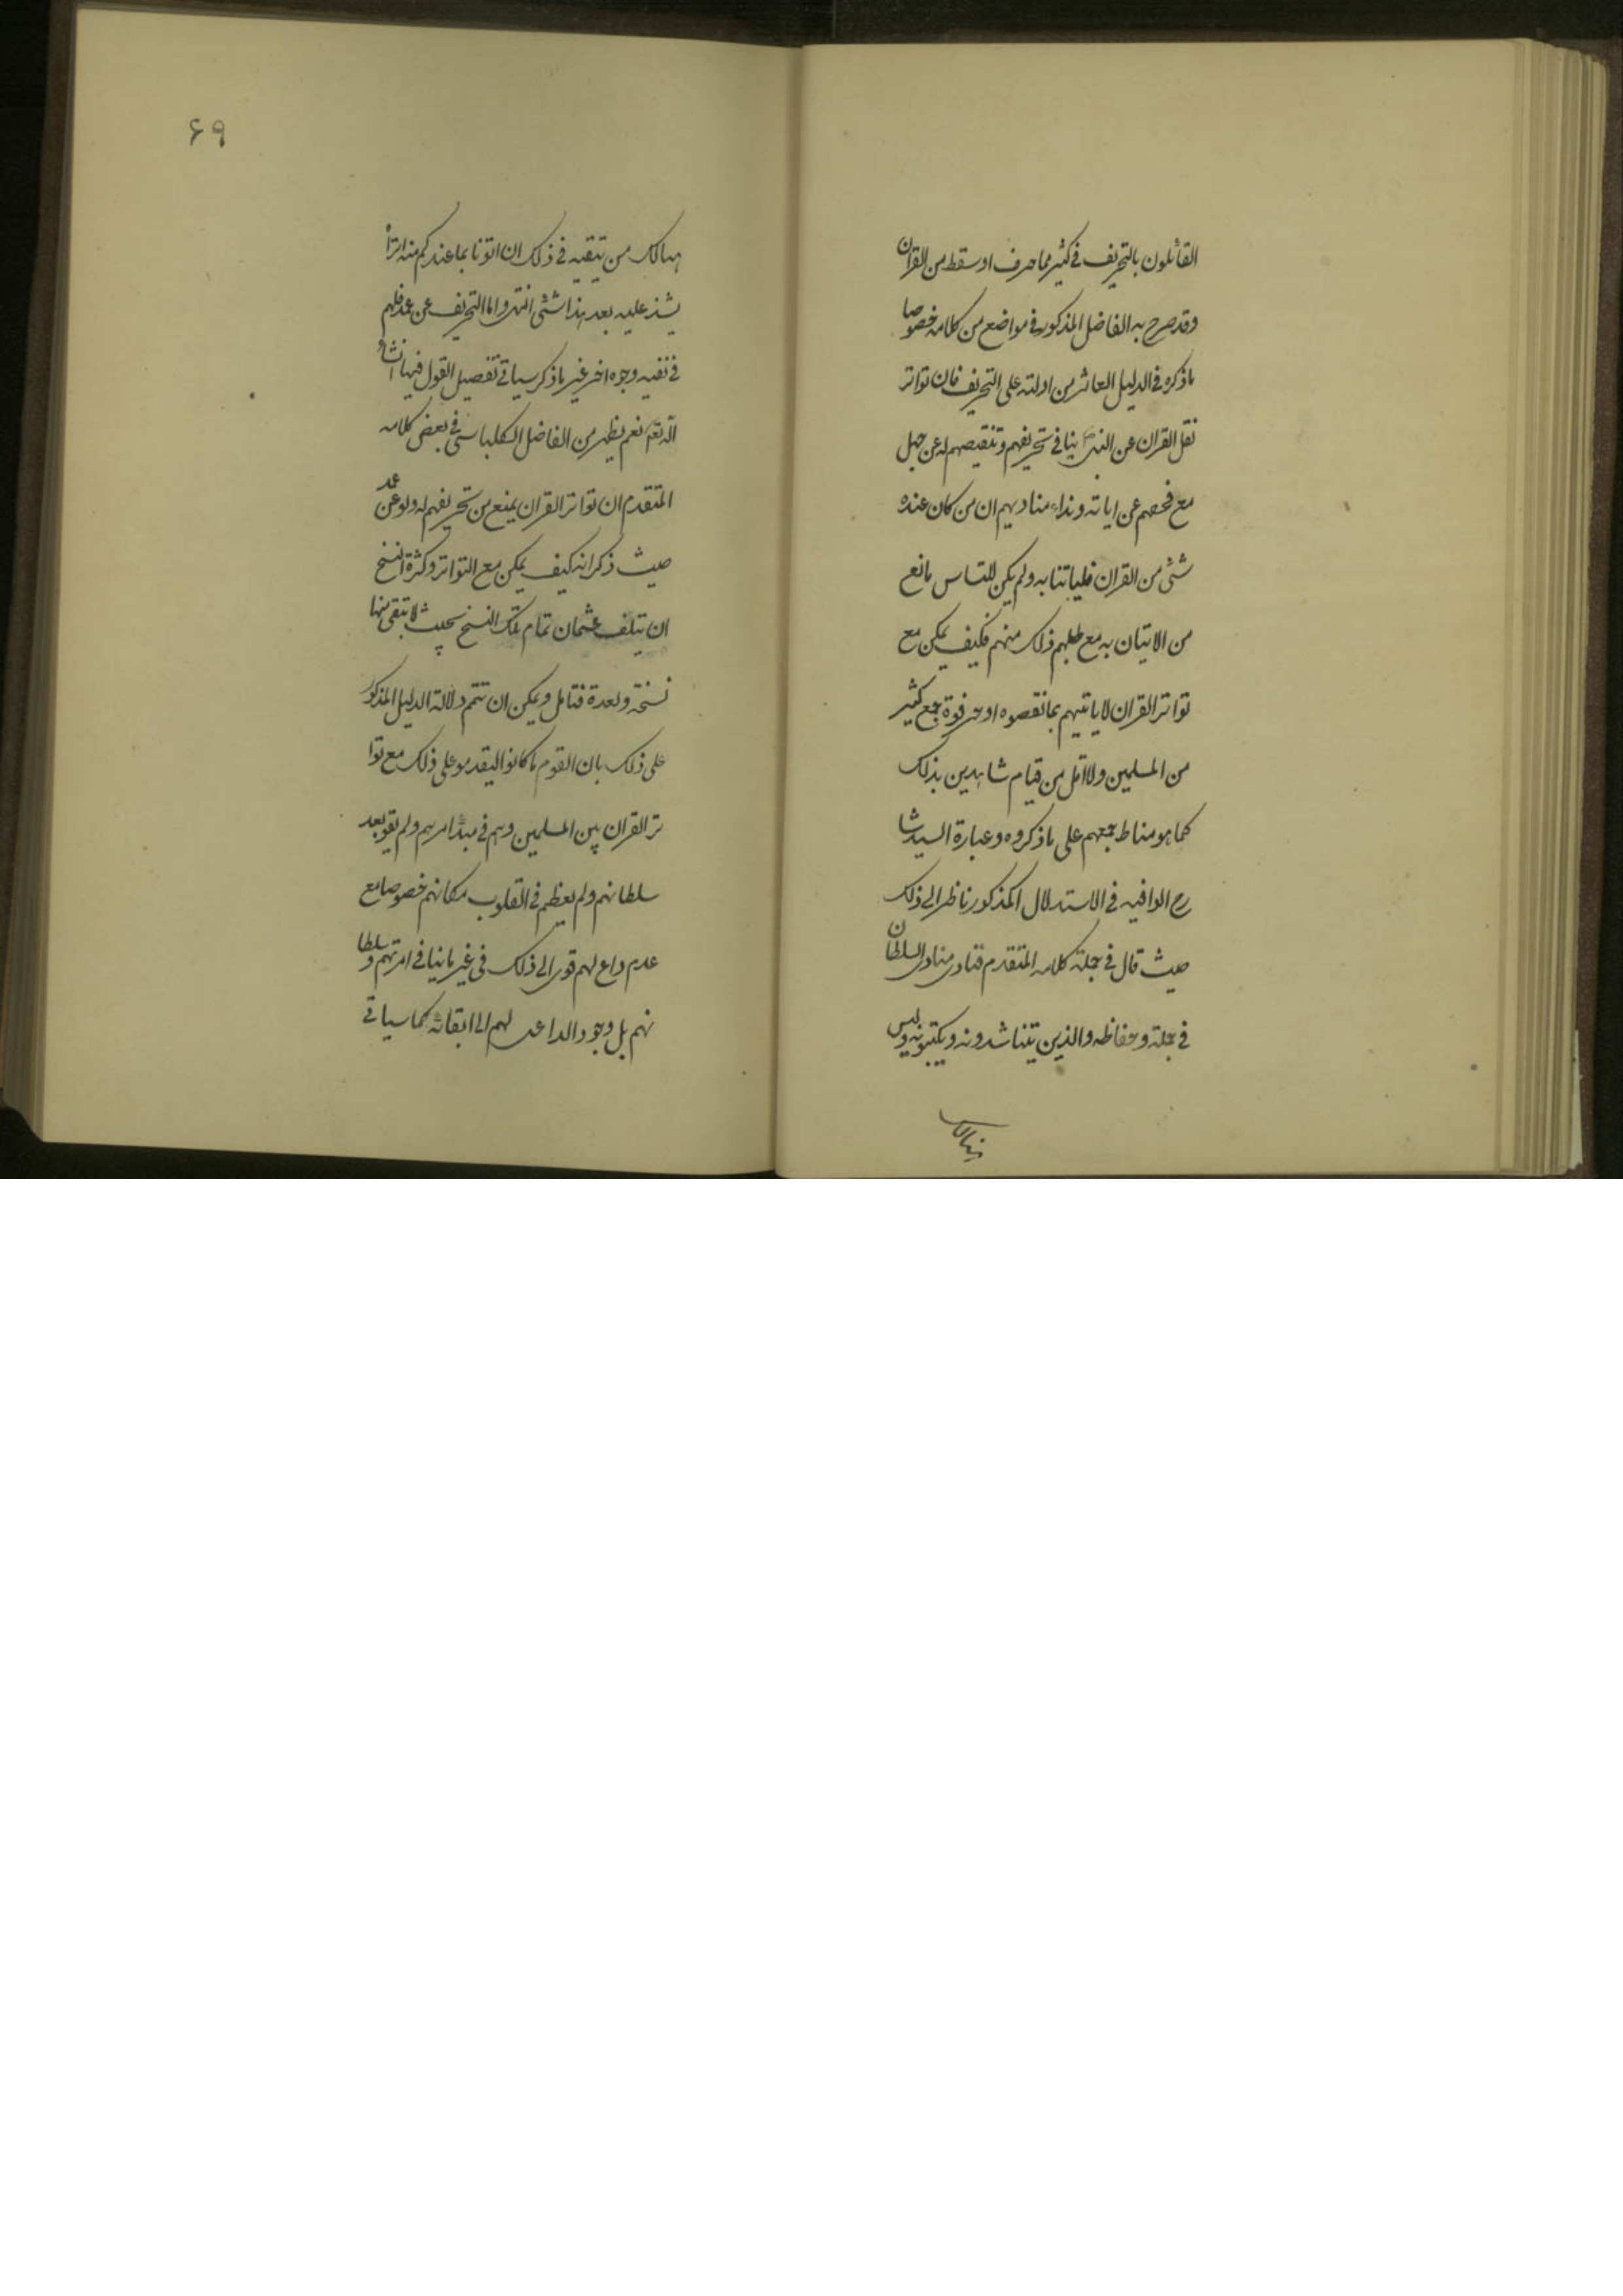 القائلون بالتحريف في كثير مما حرف او سقط من القران
وقد صرح به الفاضل المذكور في مواضع من كلامه خصوصا
ما ذكره في الدليل العاشر من ادلته على التحريف فان تواتر
نقل القران عن النبي ص ينافي تحريفهم وتنقيصهم له عن جهل
مع فحصهم عن اياته ونداء مناديهم ان من كان عنده
شئ من القران فلياتنا به ولم يكن للناس مانع
من الاتيان به مع طلبهم ذلك منهم فكيف يمكن مع
تواتر القران لا ياتيهم بما نقصوه او حرفوة جمع كثير
من المسلمين ولا اقل من قيام شاهدين بذلك
كما هو مناط جمعهم على ما ذكروه وعبارة السيد شا
رح الوافيه في الاستدلال المذكور ناظر الى ذلك
حيث قال في جملة كلامه المتقدم فنادى منادى السلطان
في جملة وحفاظه والذين يتناشدونه ويكتبونه وليس
هنالك
۶۹
هنالك من يتقيه في ذلك ان اتونا بما عندكم منه اتراْ
يشذ عليه بعد هذا شئى انتهى واما التحريف عن عمد فلهم
في نفيه وجوه اخر غير ما ذكر سياتي تفصيل القول فيها انشاء
الله تعم نعم يظهر من الفاضل الكلباسى في بعض كلامه
المتقدم ان تواتر القران يمنع من تحريفهم له ولو عن عمد
حيث ذكر انه كيف يمكن مع التواتر وكثرة النسخ
ان يتلف عثمان تمام تلك النسخ بحيث لا تبقى منها
نسخة واحدة فتامل ويمكن ان تتم دلالة الدليل المذكور
على ذلك بان القوم ما كانوا ليقدموا على ذلك مع توا
تر القران بين المسلمين وهم في مبدأ امرهم ولم يقو بعد
سلطانهم ولم يعظم في القلوب مكانهم خصوصا مع
عدم داع لهم قوى الى ذلك في غير ما ينافي امرتهم وسلطا
نهم بل وجود الداعى لهم الى ابقائه كما سياتي